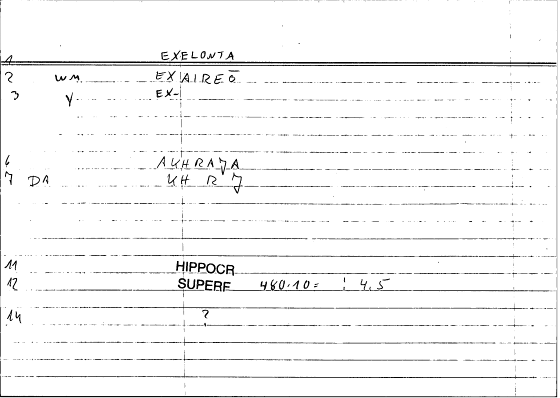 1 EXELONTA
2 WM EXAIREŌ
3 V EX-
6 AKHRAJA
7 DA KH R J
11 HIPPOCR
12 SUPERF 480.10= : 4.5
14 ?